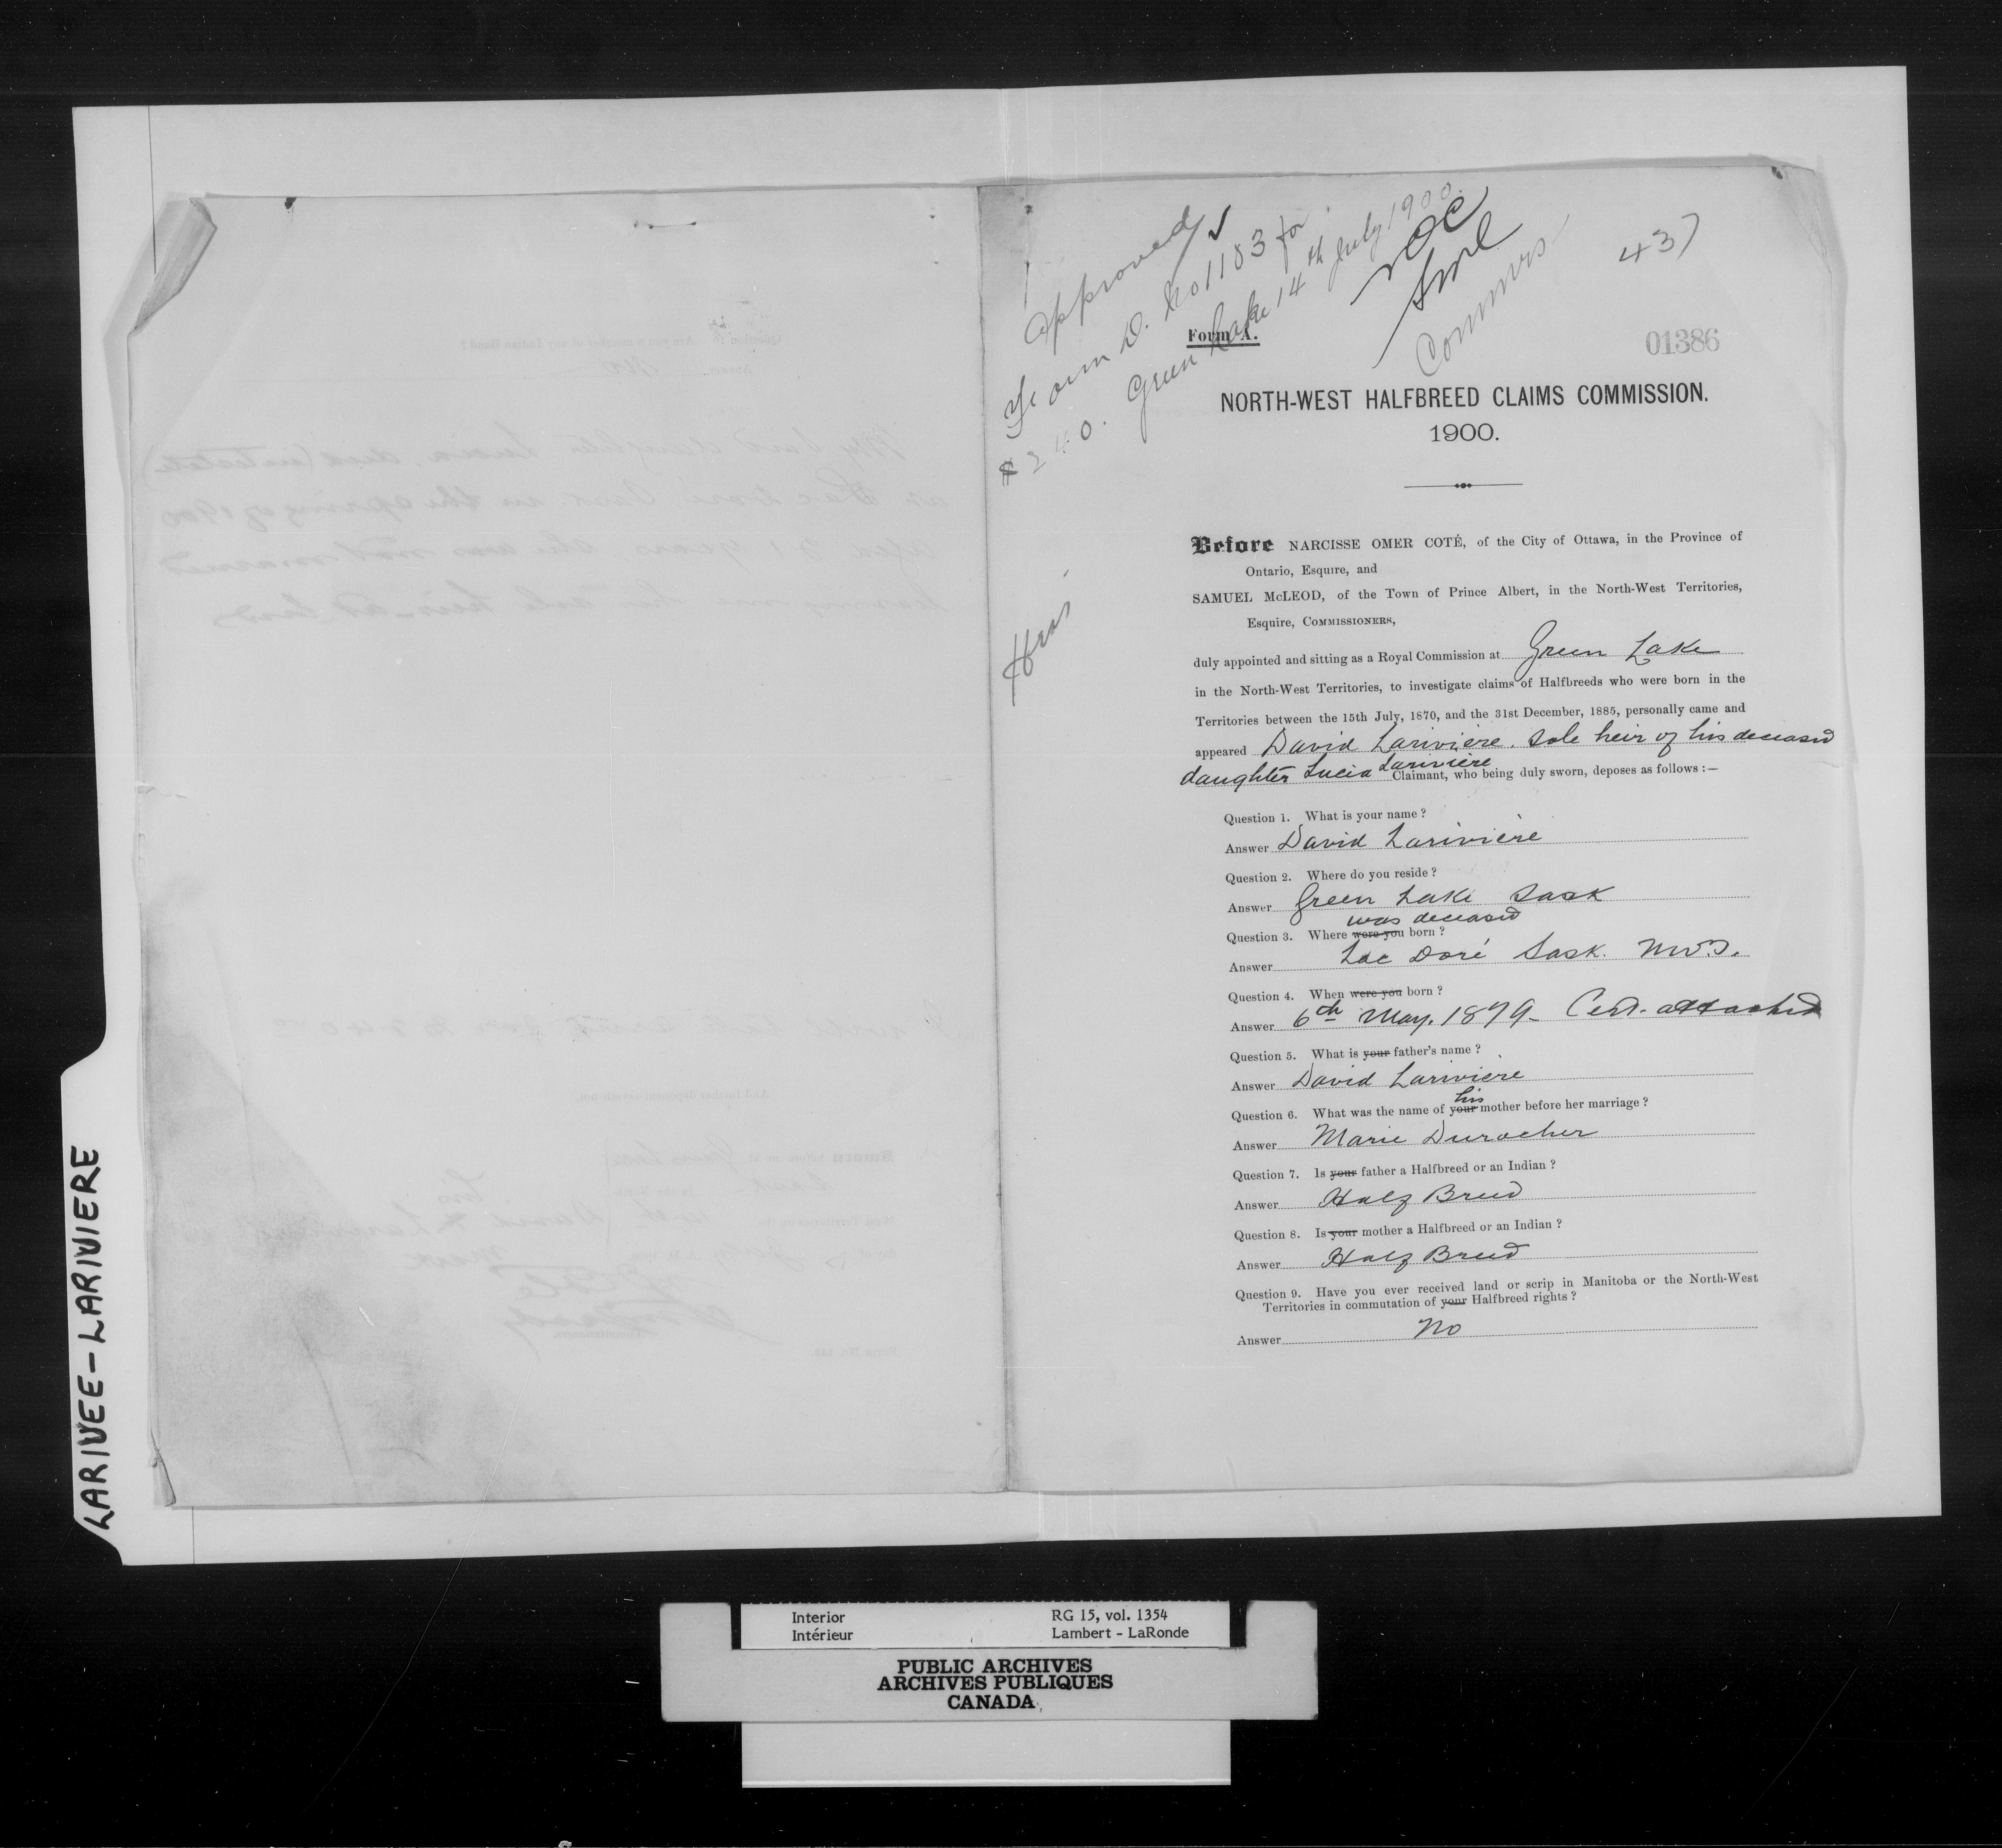 Approved
Form D. No 1183 for
$240. Green Lake 14th July 1900.
NOC
SML
Commrs
437
Form A.
01386
NORTH-WEST HALFBREED CLAIMS COMMISSION.
1900.
Before NARCISSE OMER COTÉ, of the City of Ottawa, in the Province of
Ontario, Esquire, and
SAMUEL McLEOD, of the Town of Prince Albert, in the North-West Territories,
Esquire, COMMISSIONERS,
duly appointed and sitting as a Royal Commission at Green Lake
in the North-West Territories, to investigate claims of Halfbreeds who were born in the
Territories between the 15th July, 1870, and the 31st December, 1885, personally came and
appeared David Lariviere. Sole heir of his deceased
daughter Lucia Lariviere Claimant, who being duly sworn, deposes as follows :—
Question 1. What is your name ?
Answer David Lariviere
Question 2. Where do you reside ?
Answer Green Lake Sask
was deceased
Question 3. Where were you born ?
Answer Lac Doré Sask. N.W.T.
Question 4. When were you born ?
Answer 6th May. 1879 - Cert. attached
Question 5. What is your father's name ?
Answer David Lariviere
his
Question 6. What was the name of your mother before her marriage ?
Answer Marie Durocher
Question 7. Is your father a Halfbreed or an Indian ?
Answer Half Breed
Question 8. Is your mother a Halfbreed or an Indian ?
Answer Half Breed
Question 9. Have you ever received land or scrip in Manitoba or the North-West
Territories in commutation of your Halfbreed rights ?
Answer No
LARIVEE-LARIVIERE
Interior RG 15, vol. 1354
Intérieur Lambert - LaRonde
PUBLIC ARCHIVES
ARCHIVES PUBLIQUES
CANADA